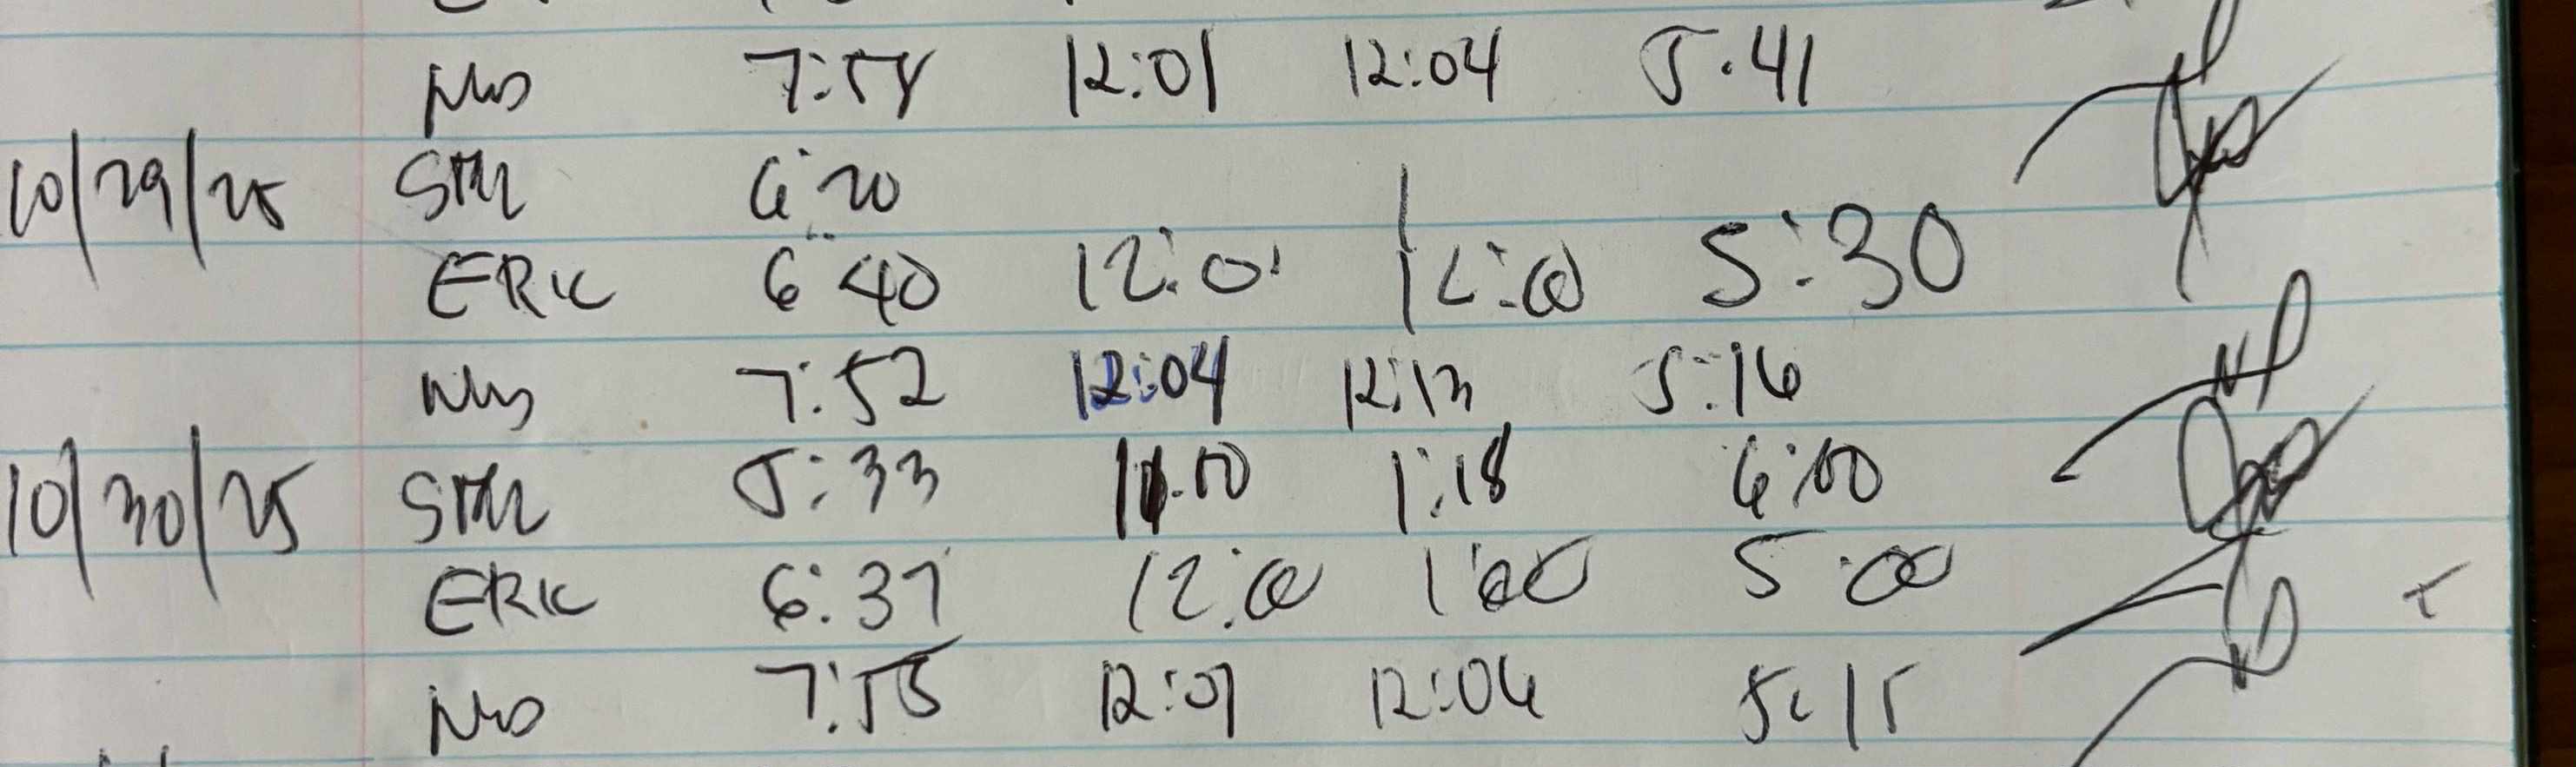 7:58 12:01 12:04 5.41
10/29/25 STR 6:20
ERIC 6:40 12:01 12:00 5:30
7:52 12:04 12:13 5:16
10/30/25 STR 5:33 11.00 1:18 6:00
ERIC 6:37 12:00 1:00 5:00
7:55 12:01 12:06 5:15